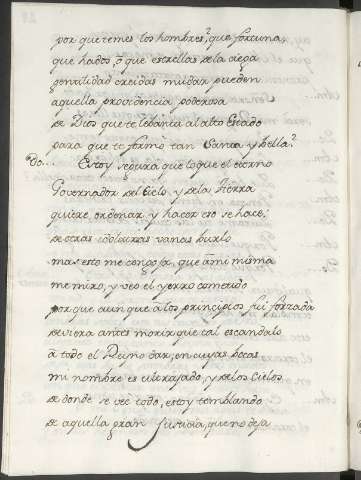 por que temes los hombres? que fortuna,
que hados, ò que estrellas de la ciega
gentilidad creidas mudar pueden
aquella providencia poderosa
de Dios que te lebanta al alto Estado
para que te formò tan Santa y bella?
Do... Estoy segura que lo que el eterno
Governador del Cielo, y de la tierra
quiere, ordenar y hacer eso se hace;
de otras cosas vanas burlo
mas esto me congoja, que a mi misma
me miro, y veo el yerro cometido
porque aun que a los principios fui forzada
deviera antes morir que tal escandalo
à todo el Reyno dar, en cuyas bocas
mi nombre es ultrajado, y de los Cielos
de donde se vee todo, estoy temblando
de aquella gran Justicia, que no deja